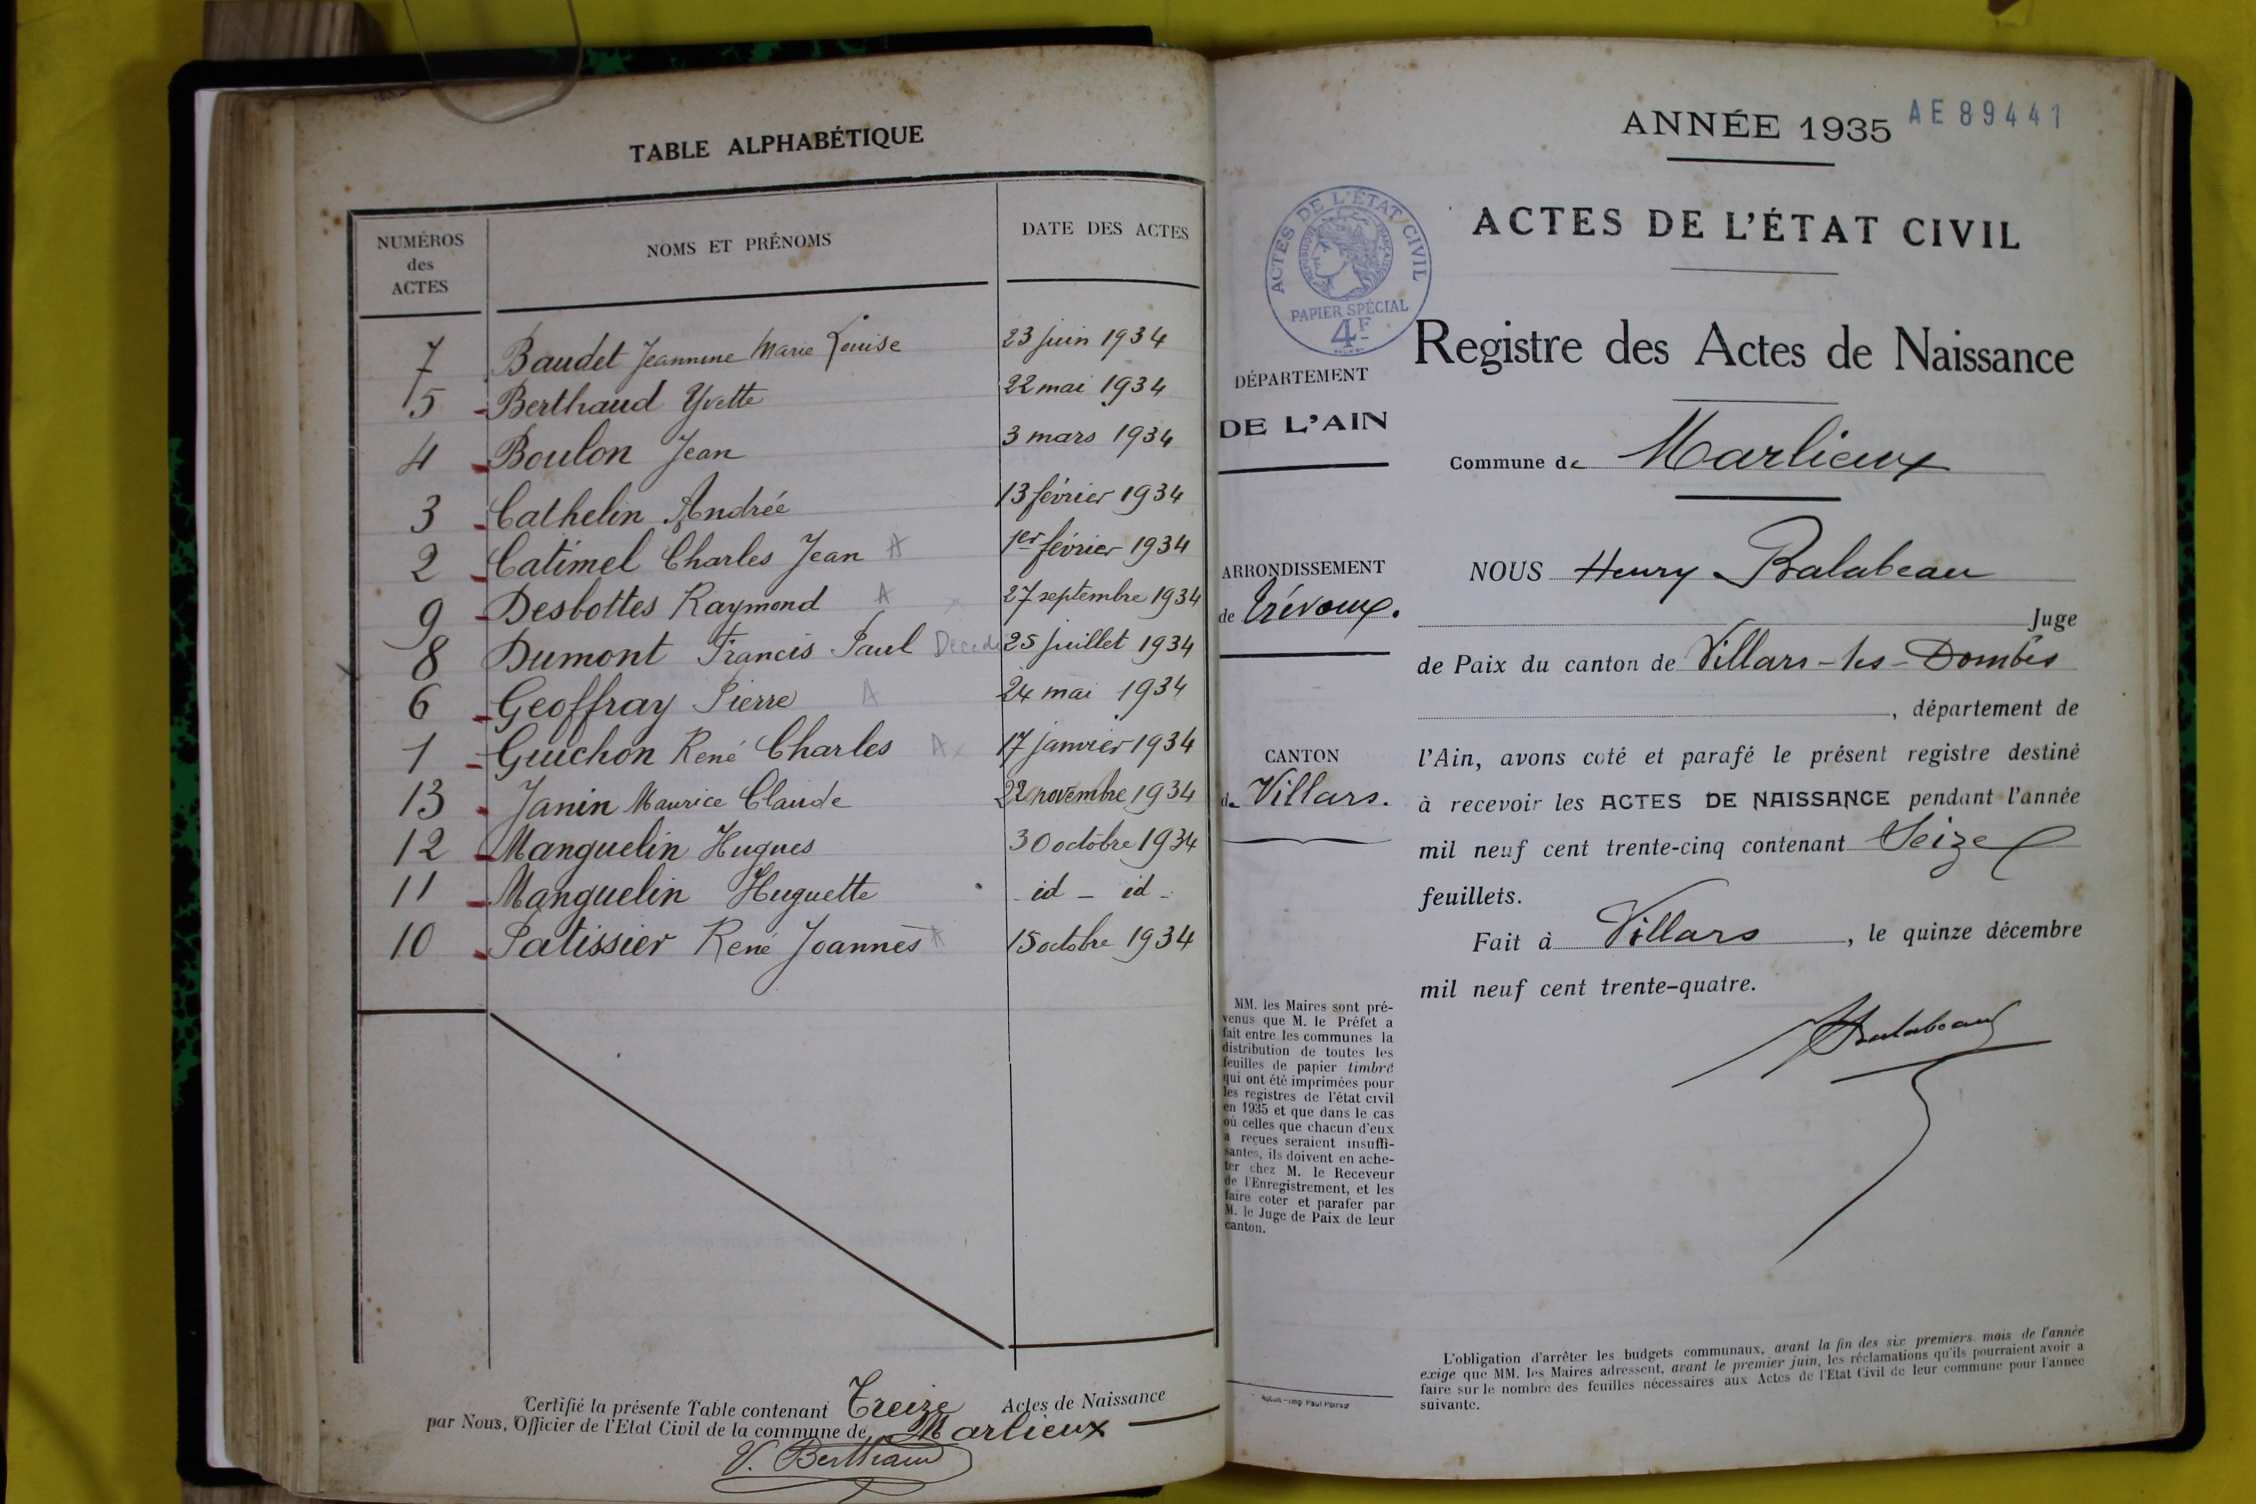 TABLE ALPHABÉTIQUE
NUMÉROS des ACTES NOMS ET PRÉNOMS DATE DES ACTES
7 Baudet Jeannine Marie Louise 23 juin 1934
5 Berthaud Yvette 22 mai 1934
4 Boulon Jean 3 mars 1934
3 Cathelin Andrée 13 février 1934
2 Catimel Charles Jean A 1er février 1934
9 Desbottes Raymond A 27 septembre 1934
8 Dumont Francis Paul Décédé 25 juillet 1934
6 Geoffray Pierre A 24 mai 1934
1 Guichon René Charles A 17 janvier 1934
13 Janin Maurice Claude 22 novembre 1934
12 Manguelin Hugues 30 octobre 1934
11 Manguelin Huguette id - id -
10 Patissier René Joannès A 15 octobre 1934
Certifié la présente Table contenant Treize Actes de Naissance
par Nous, Officier de l'Etat Civil de la commune de Marlieux
V. Berthaud
ANNÉE 1935 AE 89441
ACTES DE L'ÉTAT CIVIL
ACTES DE L'ÉTAT CIVIL
RÉPUBLIQUE FRANÇAISE
PAPIER SPÉCIAL
4F
Registre des Actes de Naissance
DÉPARTEMENT
DE L'AIN
Commune de Marlieux
ARRONDISSEMENT
de Trévoux.
CANTON
de Villars.
NOUS Henry Balabeau
Juge
de Paix du canton de Villars-les-Dombes
, département de
l'Ain, avons coté et parafé le présent registre destiné
à recevoir les ACTES DE NAISSANCE pendant l'année
mil neuf cent trente-cinq contenant Seize
feuillets.
Fait à Villars, le quinze décembre
mil neuf cent trente-quatre.
Balabeau
MM. les Maires sont pré-
venus que M. le Préfet a
fait entre les communes la
distribution de toutes les
feuilles de papier timbré
qui ont été imprimées pour
les registres de l'état civil
en 1935 et que dans le cas
où celles que chacun d'eux
a reçues seraient insuffi-
santes, ils doivent en ache-
ter chez M. le Receveur
de l'Enregistrement, et les
faire coter et parafer par
M. le Juge de Paix de leur
canton.
L'obligation d'arrêter les budgets communaux, avant la fin des six premiers mois de l'année
exige que MM. les Maires adressent, avant le premier juin, les réclamations qu'ils pourraient avoir à
faire sur le nombre des feuilles nécessaires aux Actes de l'Etat Civil de leur commune pour l'année
suivante.